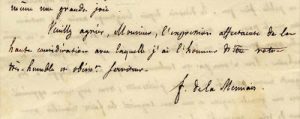 même une grande joie.
Veuillez agréer, Monsieur, l'expression affectueuse de la
haute considération avec laquelle j'ai l'honneur d'être votre
très humble et obéiss. serviteur.
f. de la Mennais